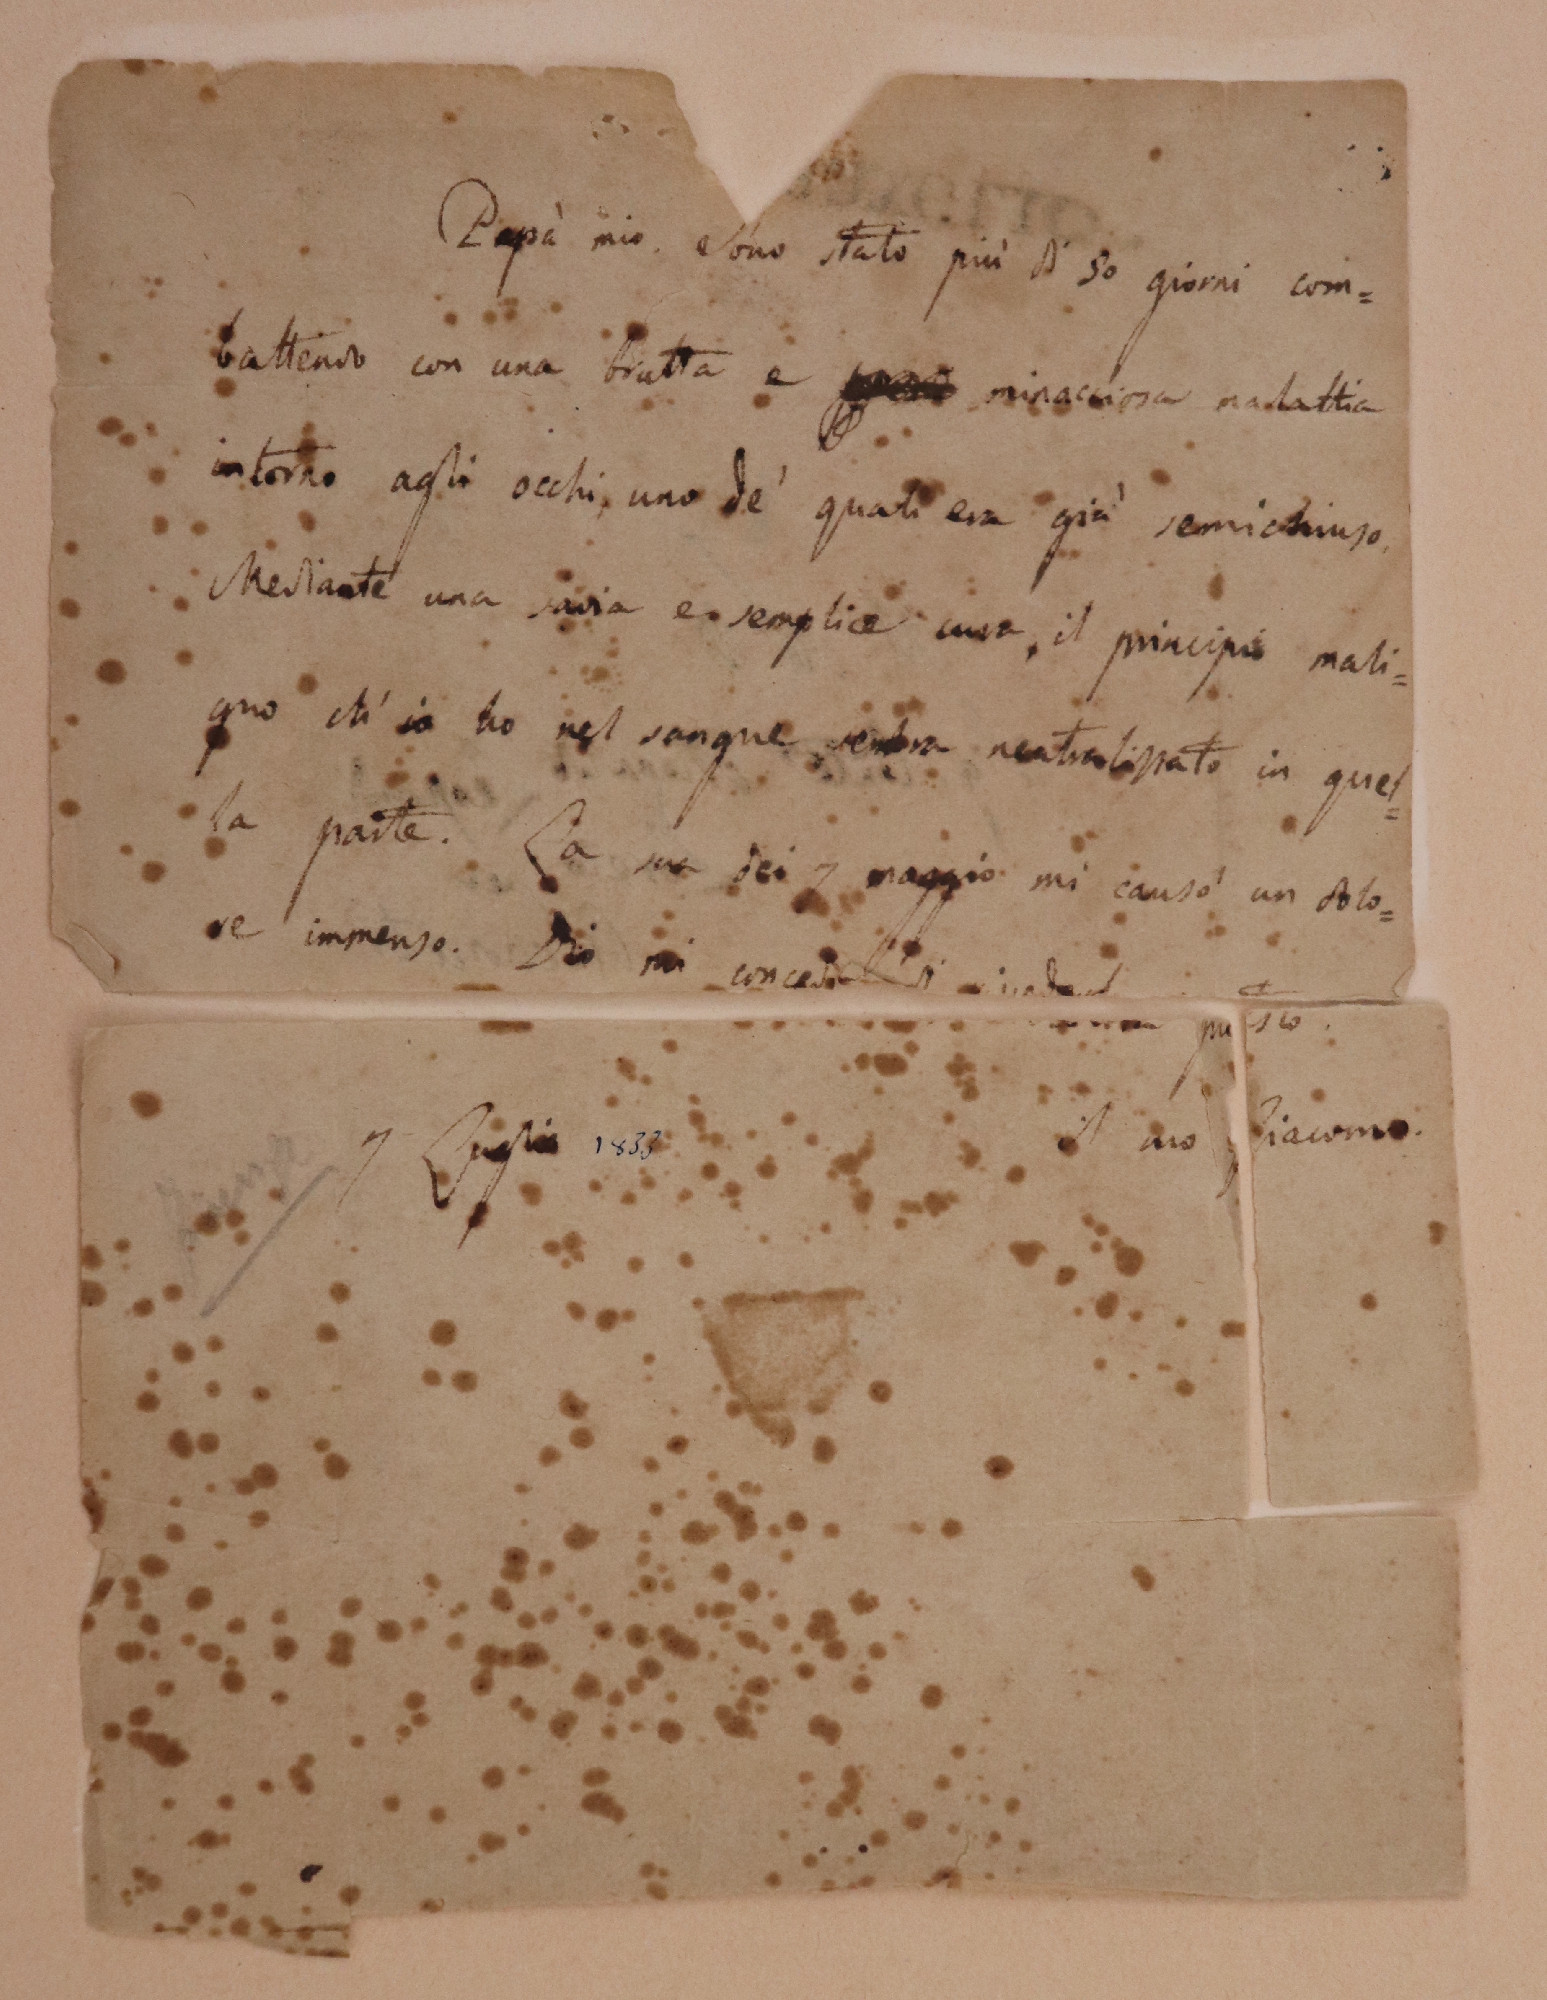 Papà mio. Sono stato più di 50 giorni com=
battendo con una brutta e minacciosa malattia
intorno agli occhi, uno de' quali era già semichiuso.
Mediante una savia e semplice cura, il principio mali=
gno ch' io ho nel sangue sembra neutralizzato in quel=
la parte. La sua dei 7 maggio mi causò un dolo=
re immenso. Dio mi conceda di rivederla presto.
7 Luglio 1833 Il suo Giacomo.